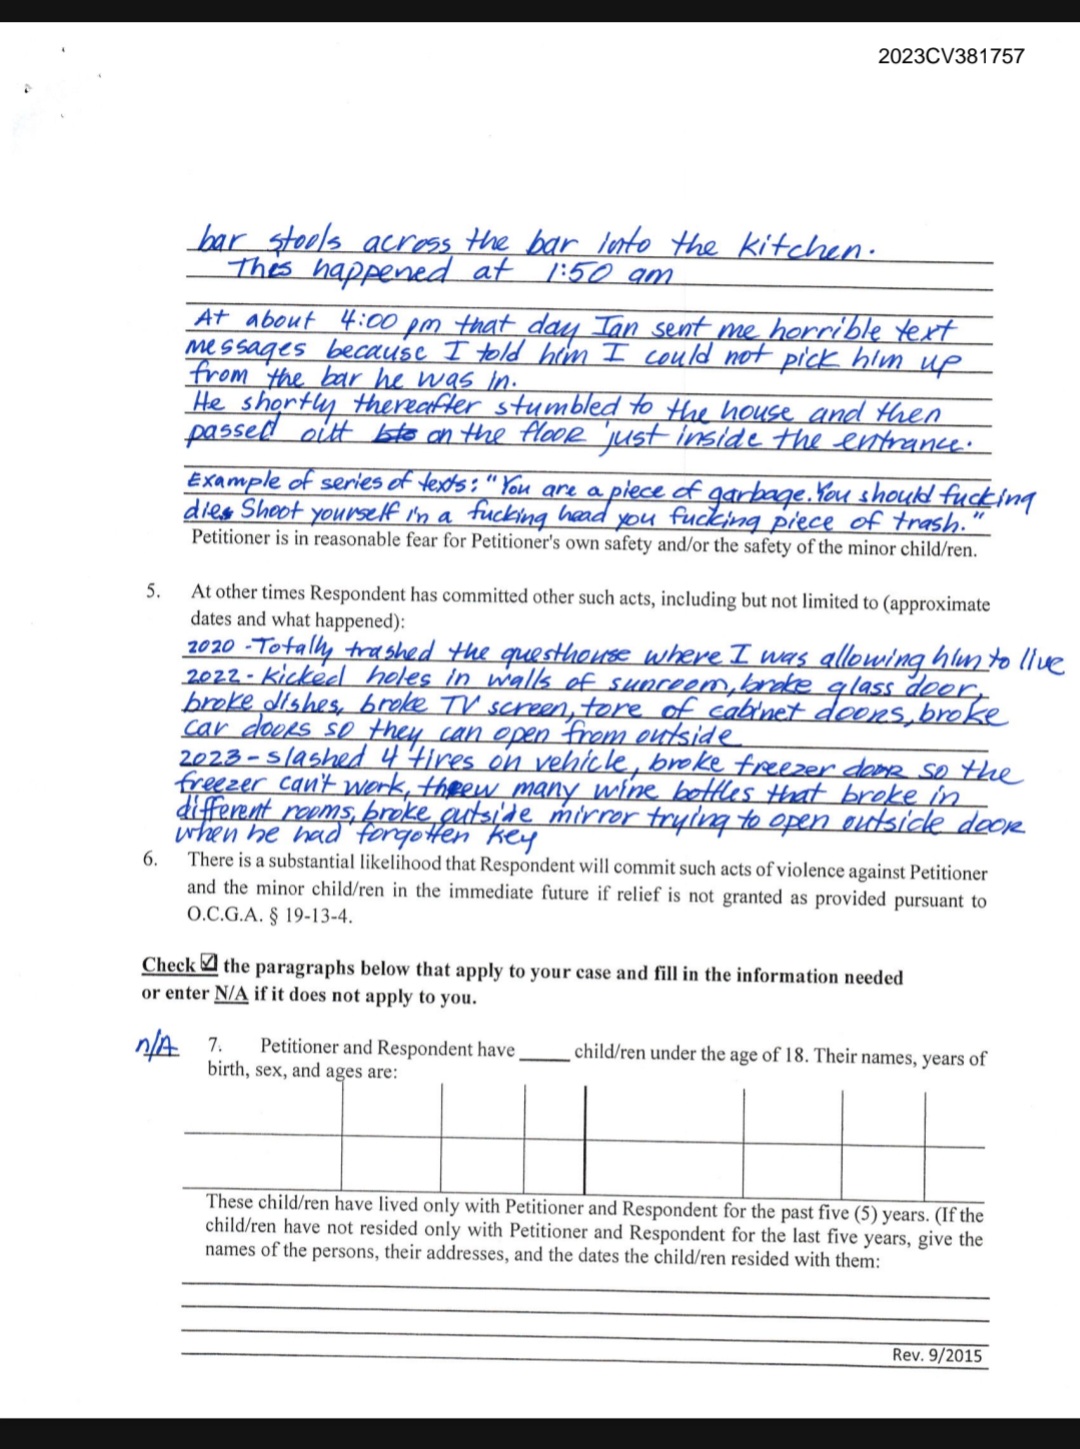 2023CV381757
bar stools across the bar into the kitchen.
This happened at 1:50 am
At about 4:00 pm that day Ian sent me horrible text
messages because I told him I could not pick him up
from the bar he was in.
He shortly thereafter stumbled to the house and then
passed out on the floor just inside the entrance.
Example of series of texts: "You are a piece of garbage. You should fucking
die. Shoot yourself in a fucking head you fucking piece of trash."
Petitioner is in reasonable fear for Petitioner's own safety and/or the safety of the minor child/ren.
5. At other times Respondent has committed other such acts, including but not limited to (approximate
dates and what happened):
2020 - Totally trashed the guesthouse where I was allowing him to live
2022 - Kicked holes in walls of sunroom, broke glass door,
broke dishes, broke TV screen, tore of cabinet doors, broke
car doors so they can open from outside
2023 - slashed 4 tires on vehicle, broke freezer door so the
freezer can't work, threw many wine bottles that broke in
different rooms, broke outside mirror trying to open outside door
when he had forgotten key
6. There is a substantial likelihood that Respondent will commit such acts of violence against Petitioner
and the minor child/ren in the immediate future if relief is not granted as provided pursuant to
O.C.G.A. § 19-13-4.
Check ☑ the paragraphs below that apply to your case and fill in the information needed
or enter N/A if it does not apply to you.
n/A 7. Petitioner and Respondent have _____ child/ren under the age of 18. Their names, years of
birth, sex, and ages are:
These child/ren have lived only with Petitioner and Respondent for the past five (5) years. (If the
child/ren have not resided only with Petitioner and Respondent for the last five years, give the
names of the persons, their addresses, and the dates the child/ren resided with them:
Rev. 9/2015